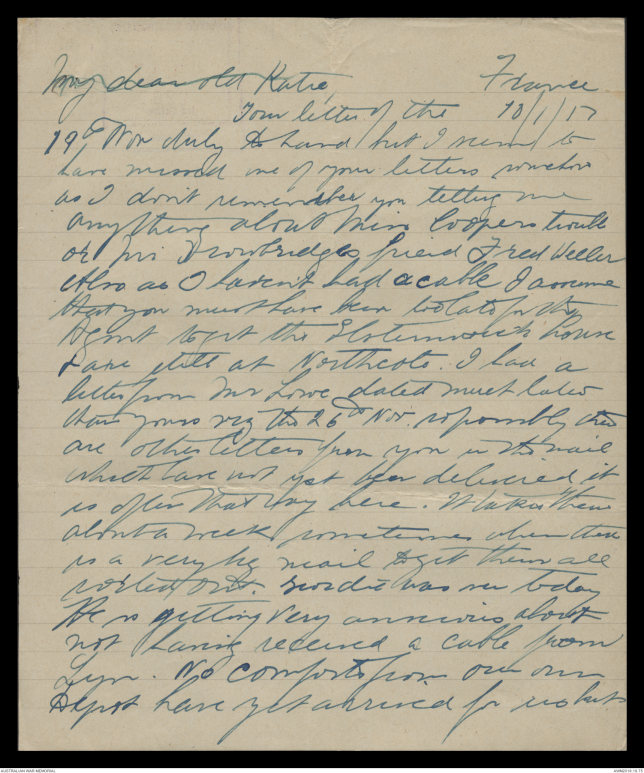 My dear old Katie, France
Your letter of the 10/1/17
19th Nov duly to hand but I seem to
have missed one of your letters somehow
as I don't remember you telling me
anything about Miss Coopers trouble
or Mr Trowbridges friend Fred Weller
Also as I havent had a cable I assume
that you must have been too late for the
Agent to get the Elsternwick house
& are still at Northcote. I had a
letter from Mr Lowe dated much later
than yours viz the 26th Nov. so possibly there
are other letters from you in the mail
which have not yet been delivered, it
is often that way here. It takes them
about a week sometimes when there
is a very big mail to get them all
sorted out. Geordie was over today
He is getting very anxious about
not having received a cable from
Lyn. No comforts from our own
Depot have yet arrived for us but
AUSTRALIAN WAR MEMORIAL